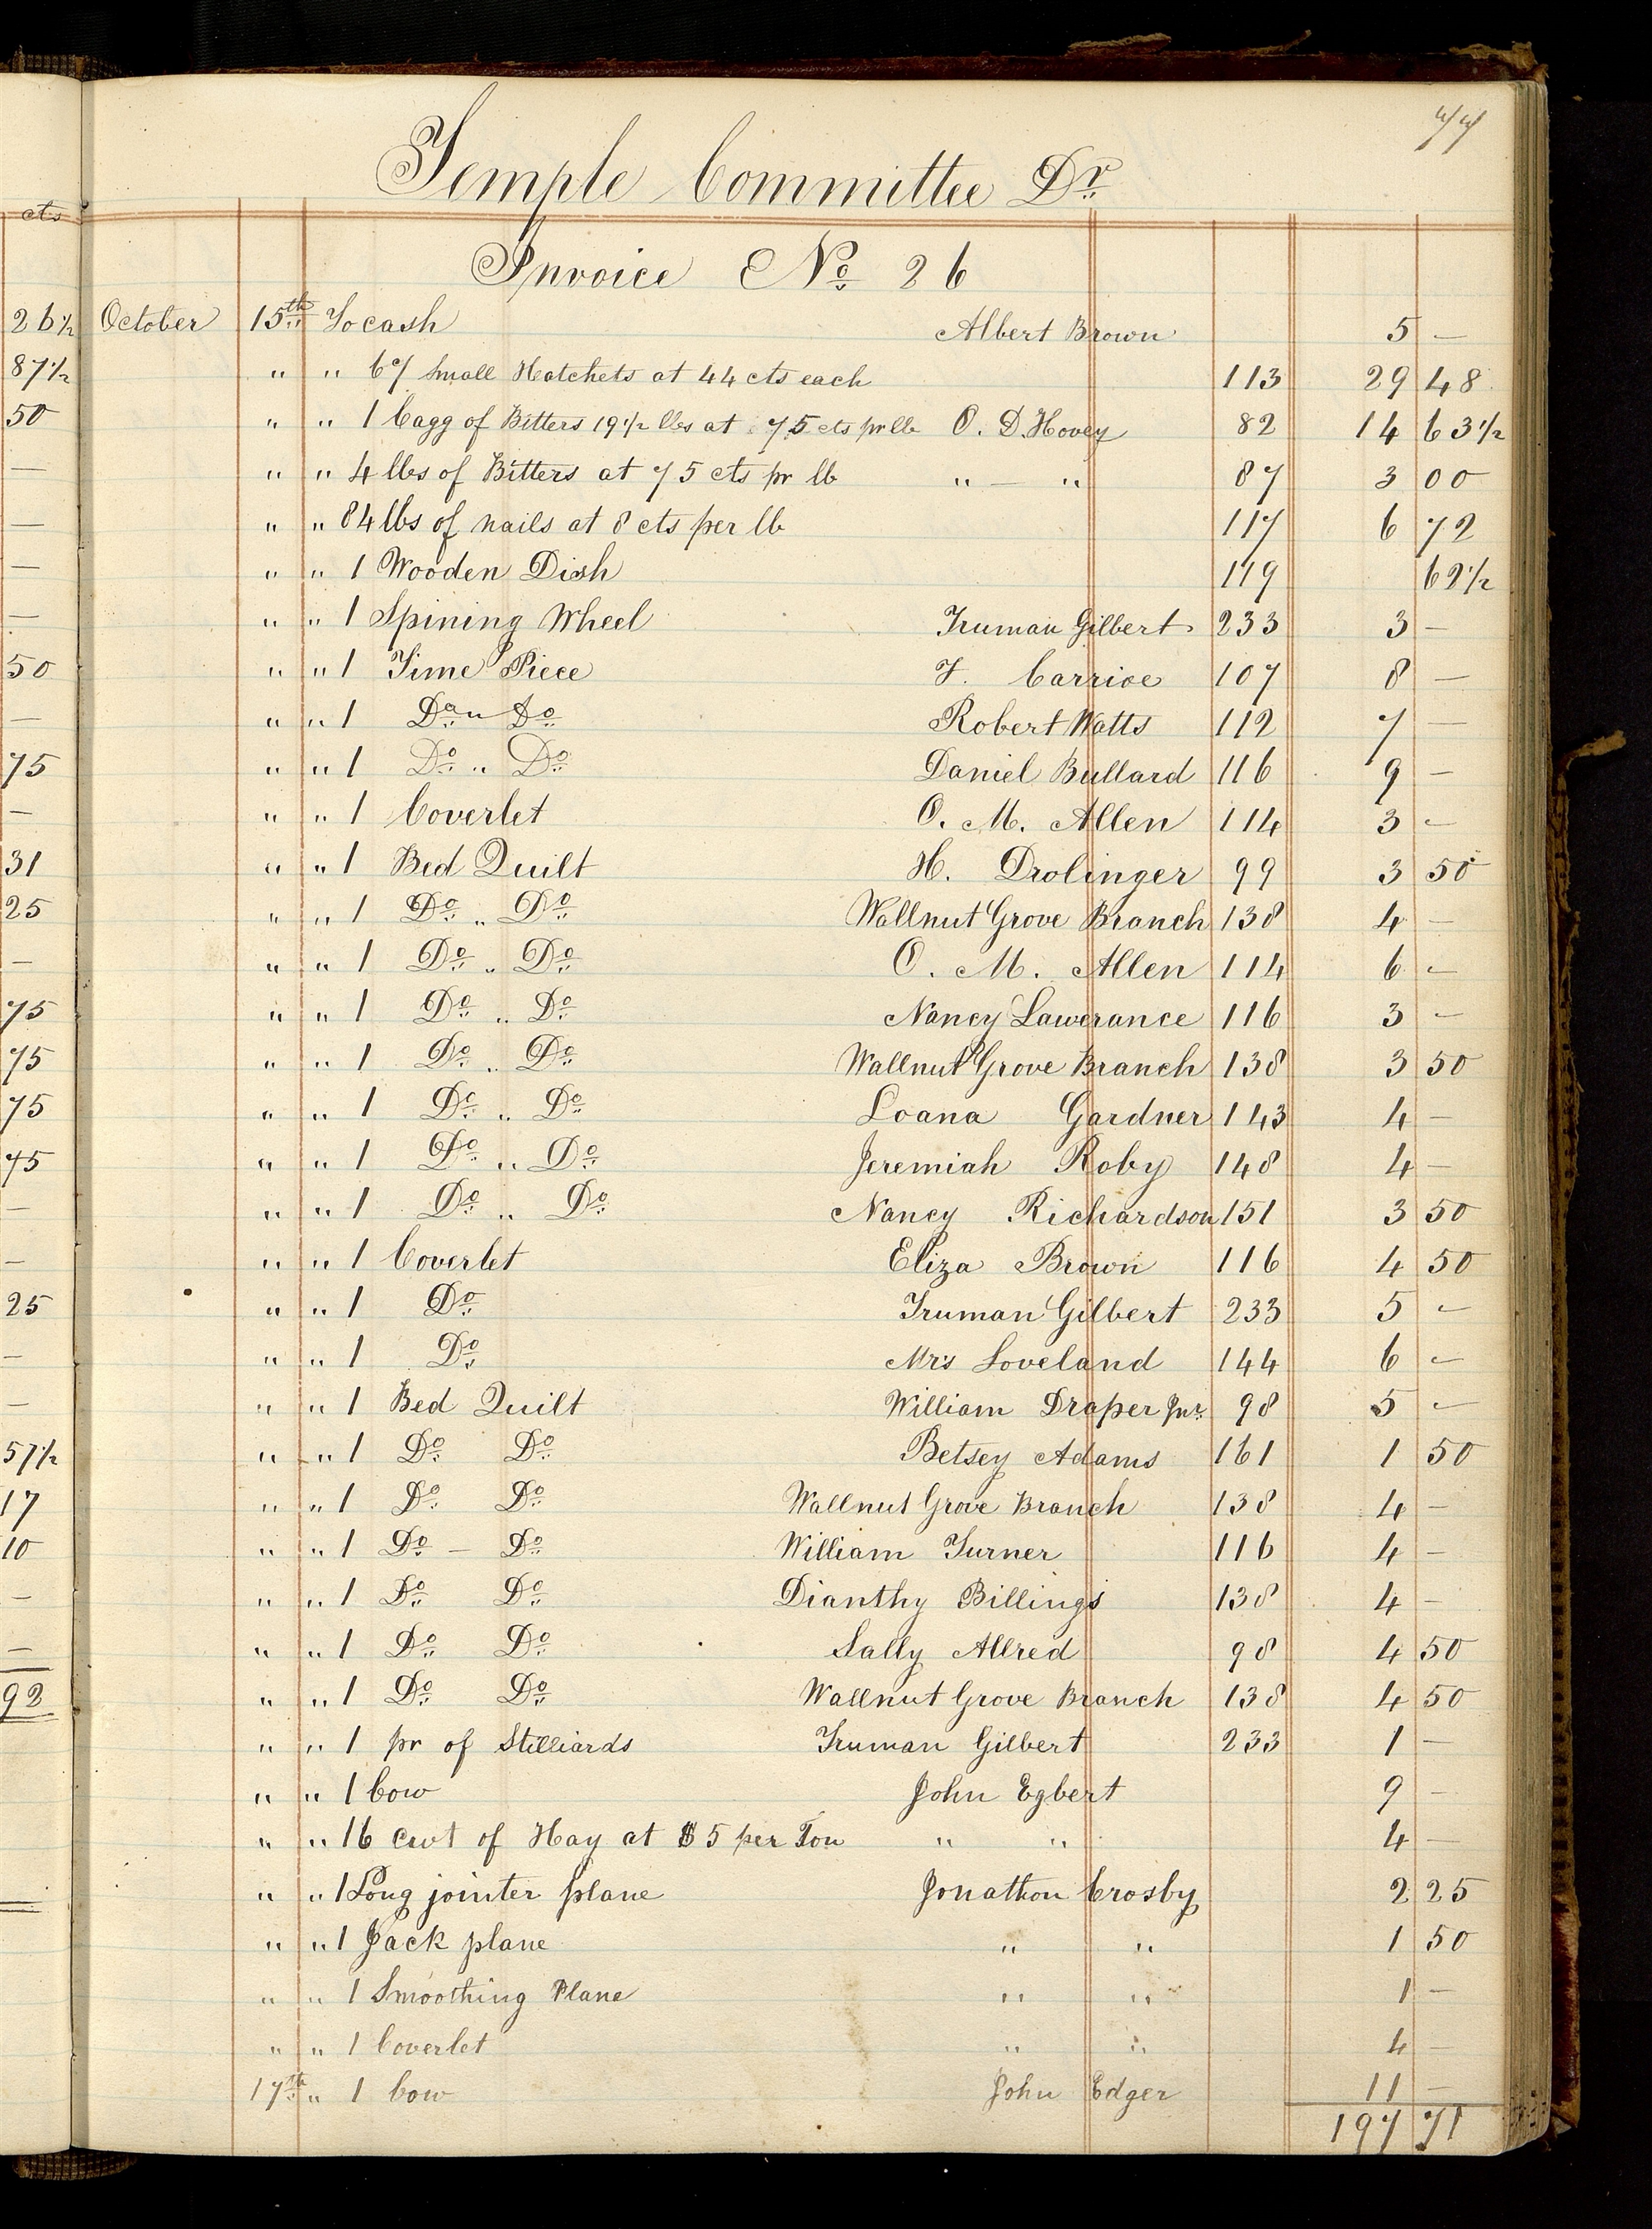 77
Temple Committee Dr
cts
Invoice No 26
26½ October 15th To cash Albert Brown 5 —
87½ " " 67 Small Hatchets at 44 cts each 113 29 48
50 " " 1 Cagg of Bitters 19½ lbs at 75 cts pr lb O. D. Hovey 82 14 63½
— " " 4 lbs of Bitters at 75 cts pr lb " — " 87 3 00
— " " 84 lbs of nails at 8 cts per lb 117 6 72
— " " 1 Wooden Dish 119 62½
— " " 1 Spining Wheel Truman Gilbert 233 3 —
50 " " 1 Time Piece F. Carrice 107 8 —
— " " 1 Do " Do Robert Watts 112 7 —
75 " " 1 Do " Do Daniel Bullard 116 9 —
— " " 1 Coverlet O. M. Allen 114 3 —
31 " " 1 Bed Quilt H. Drolinger 99 3 50
25 " " 1 Do " Do Wallnut Grove Branch 138 4 —
— " " 1 Do " Do O. M. Allen 114 6 —
75 " " 1 Do " Do Nancy Lawerance 116 3 —
75 " " 1 Do " Do Wallnut Grove Branch 138 3 50
75 " " 1 Do " Do Loana Gardner 143 4 —
45 " " 1 Do " Do Jeremiah Roby 148 4 —
— " " 1 Do " Do Nancy Richardson 151 3 50
— " " 1 Coverlet Eliza Brown 116 4 50
25 " " 1 Do Truman Gilbert 233 5 —
— " " 1 Do Mrs Loveland 144 6 —
— " " 1 Bed Quilt William Draper Jnr. 98 5 —
57½ " " 1 Do Do Betsey Adams 161 1 50
17 " " 1 Do Do Wallnut Grove Branch 138 4 —
10 " " 1 Do — Do William Turner 116 4 —
— " " 1 Do Do Dianthy Billings 138 4 —
— " " 1 Do Do Sally Allred 98 4 50
92 " " 1 Do Do Wallnut Grove Branch 138 4 50
" " 1 pr of Stilliards Truman Gilbert 233 1 —
" " 1 Cow John Egbert 9 —
" " 16 cwt of Hay at $5 per Ton " " 4 —
" " 1 Long jointer plane Jonathon Crosby 2 25
" " 1 Jack plane " " 1 50
" " 1 Smoothing Plane " " 1 —
" " 1 Coverlet " " 4 —
17th " 1 Cow John Edger 11 —
197 71